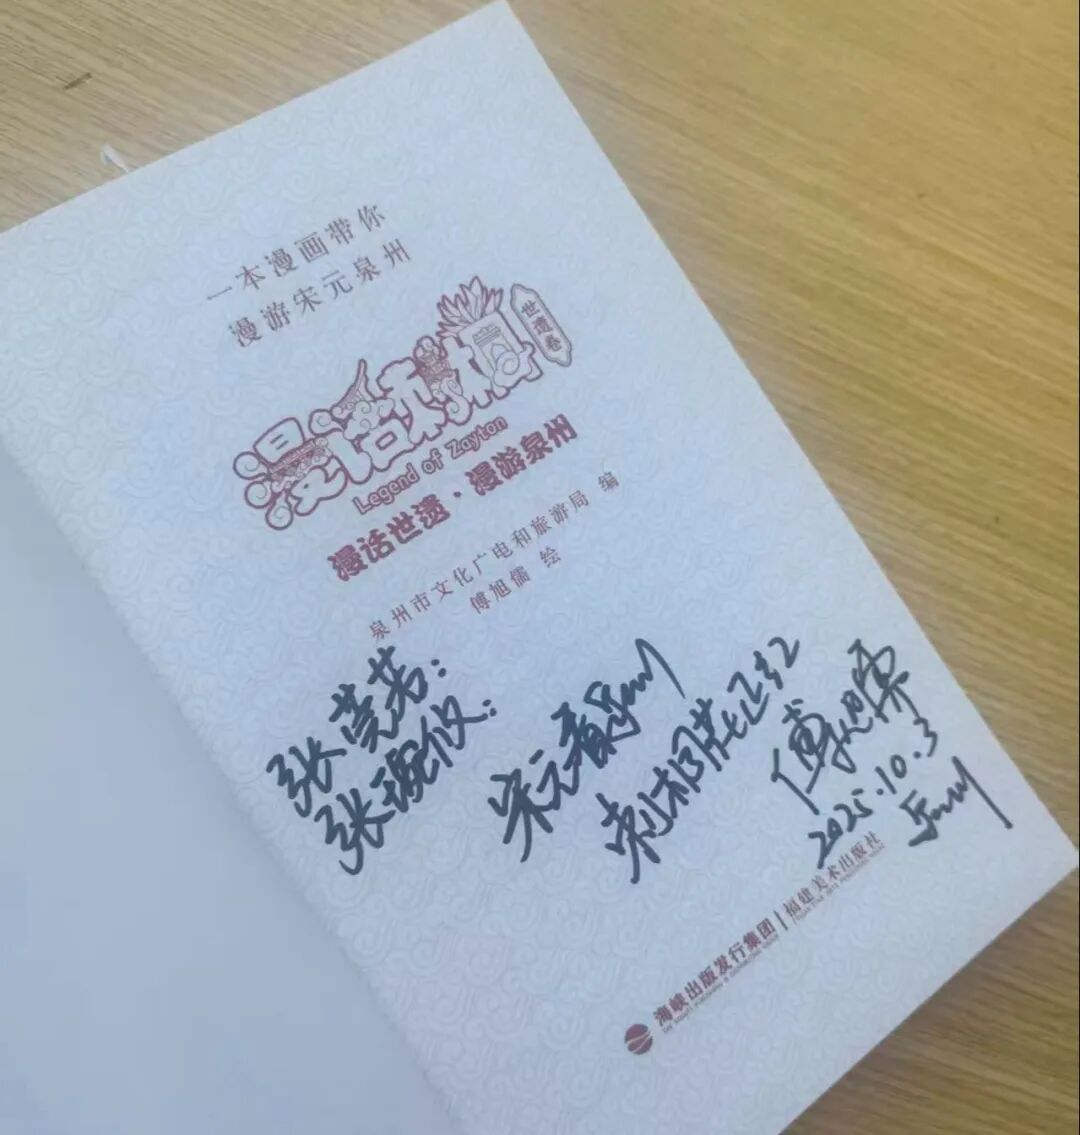 一本漫画带你
漫游宋元泉州
漫话刺桐
世遗卷
Legend of Zayton
漫话世遗·漫游泉州
泉州市文化广电和旅游局 编
傅旭儒 绘
张莞若:
张琬仪:
宋元看泉州
刺桐花正红
傅旭儒
2025.10.3
泉州
海峡出版发行集团 | 福建美术出版社